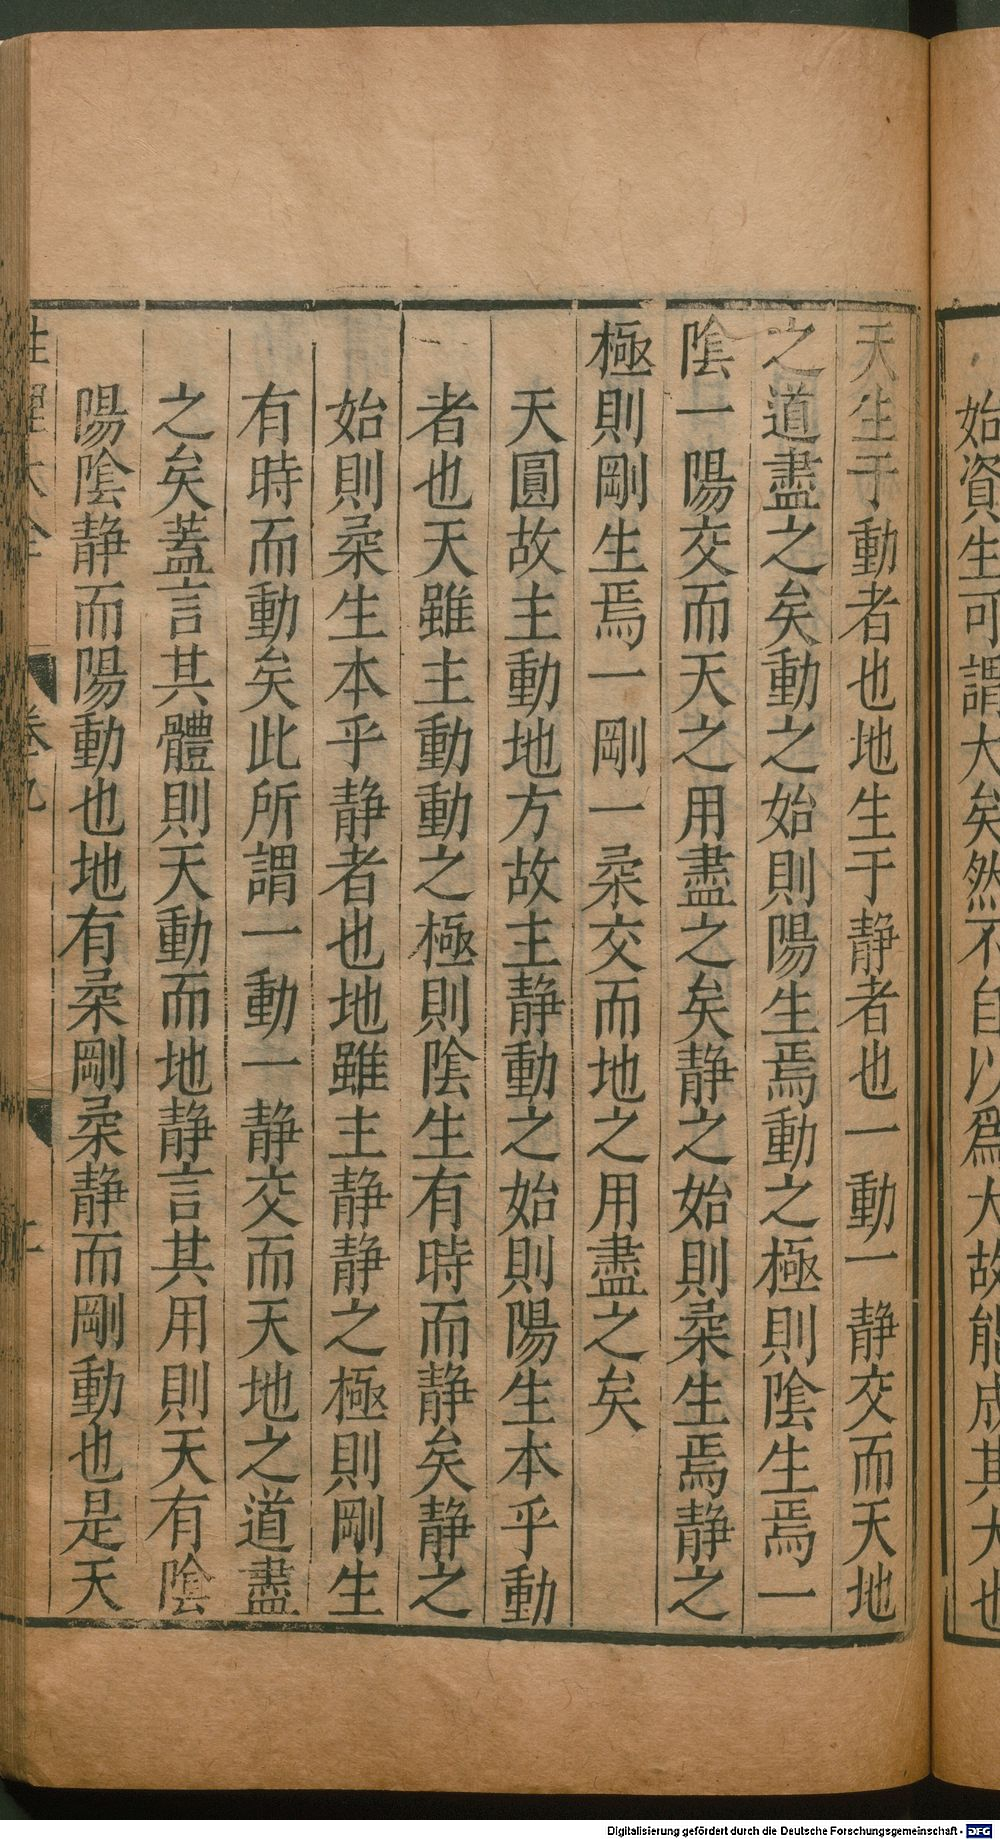 始資生可謂大矣然不自以爲大故能成其大也
天生于動者也地生于静者也一動一静交而天地
之道盡之矣動之始則陽生焉動之極則陰生焉一
陰一陽交而天之用盡之矣静之始則柔生焉静之
極則剛生焉一剛一柔交而地之用盡之矣
天圓故主動地方故主静動之始則陽生本乎動
者也天雖主動動之極則陰生有時而静矣静之
始則柔生本乎静者也地雖主静静之極則剛生
有時而動矣此所謂一動一静交而天地之道盡
之矣蓋言其體則天動而地静言其用則天有陰
陽陰静而陽動也地有柔剛柔静而剛動也是天
性理大全 卷九
Digitalisierung gefördert durch die Deutsche Forschungsgemeinschaft - DFG